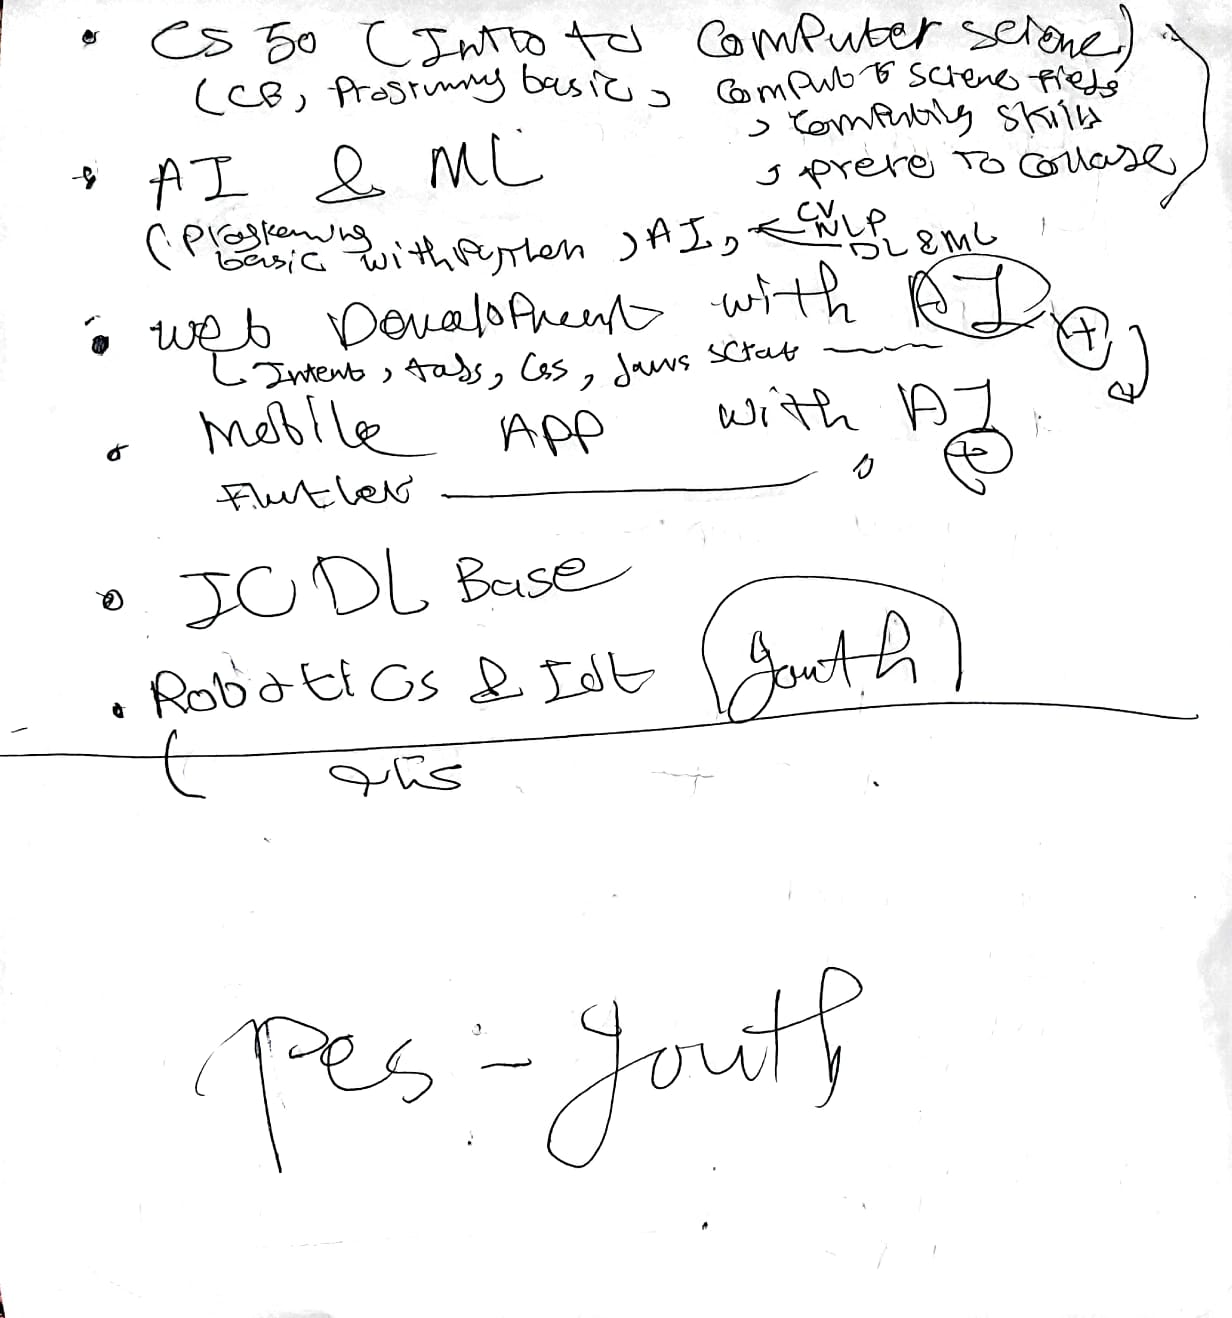 • CS 50 (Intro to Computer sciene)
(CB, Progrimmy basic, Computer sciene fieds
, Computing skills
, prere to collase
• AI & ML
(Progremming basic with Pyten , AI, CV NLP
DL & ML
• web Development with AI (+)
Intent, tads, Css, Java scrat
• Mobile APP with AI (+)
Flutter
• ICDL Base
• Robotics & Iot (youth)
(
pes :- youth